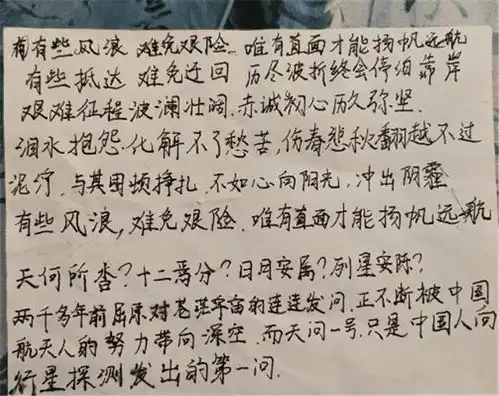 有些风浪 难免艰险 唯有直面才能扬帆远航
有些抵达 难免迂回 历尽波折终会停泊靠岸
艰难征程波澜壮阔.赤诚初心历久弥坚.
泪水抱怨.化解不了愁苦,伤春悲秋翻越不过
泥泞.与其困顿挣扎.不如心向阳光,冲出阴霾
有些风浪,难免艰险.唯有直面才能扬帆远航
天何所沓?十二焉分?日月安属?列星安陈?
两千多年前屈原对苍茫宇宙的连连发问.正不断被中国
航天人的努力带向深空.而天问一号.只是中国人向
行星探测发出的第一问.